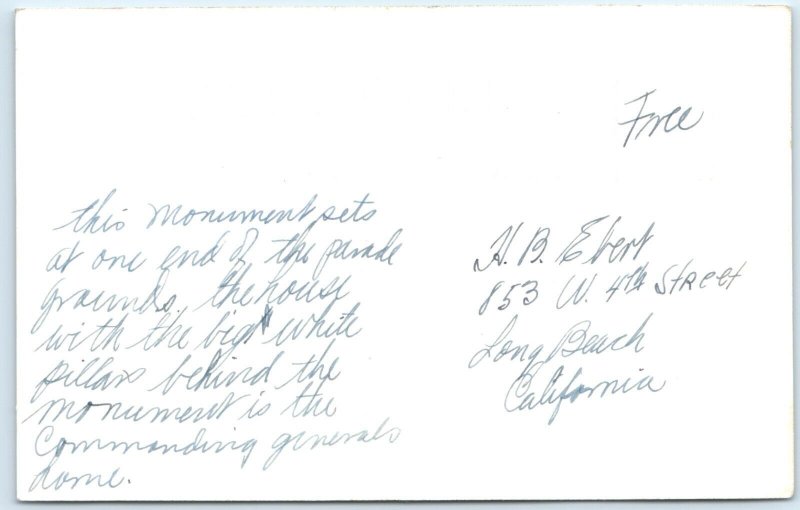 Free
this monument sets
at one end of the parade
grounds. the house
with the big white
pillars behind the
monument is the
Commanding generals
home.
H. B. Ebert
853 W. 4th Street
Long Beach
California